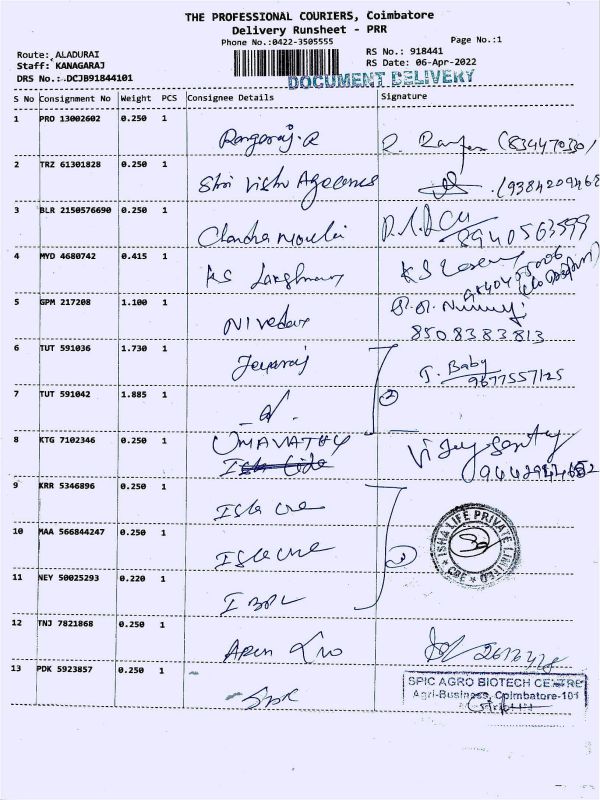 THE PROFESSIONAL COURIERS, Coimbatore
Delivery Runsheet - PRR
Phone No.:0422-3505555
Page No.:1
Route: ALADURAI
RS No.: 918441
Staff: KANAGARAJ
RS Date: 06-Apr-2022
DRS No.: DCJB91844101
DOCUMENT DELIVERY
S No Consignment No Weight PCS Consignee Details Signature
1 PRO 13002602 0.250 1 Rangaraj.R
2 TRZ 61301828 0.250 1 Shri Vishnu Agencies (9384209468
3 BLR 2150576690 0.250 1 Chandra Mouli
8940563599
4 MYD 4680742 0.415 1 KS
5 GPM 217208 1.100 1
8508383813
6 TUT 591036 1.730 1 Jeyaraj T. Baby
9677557125
7 TUT 591042 1.885 1
2
8 KTG 7102346 0.250 1 UMAVATHY
9 KRR 5346896 0.250 1 Isha
10 MAA 566844247 0.250 1
3
ISHA LIFE PRIVATE LIMITED
CBE
11 NEY 50025293 0.220 1
12 TNJ 7821868 0.250 1 Arun
13 PDK 5923857 0.250 1 Spic
SPIC AGRO BIOTECH CENTRE
Agri-Business, Coimbatore-101